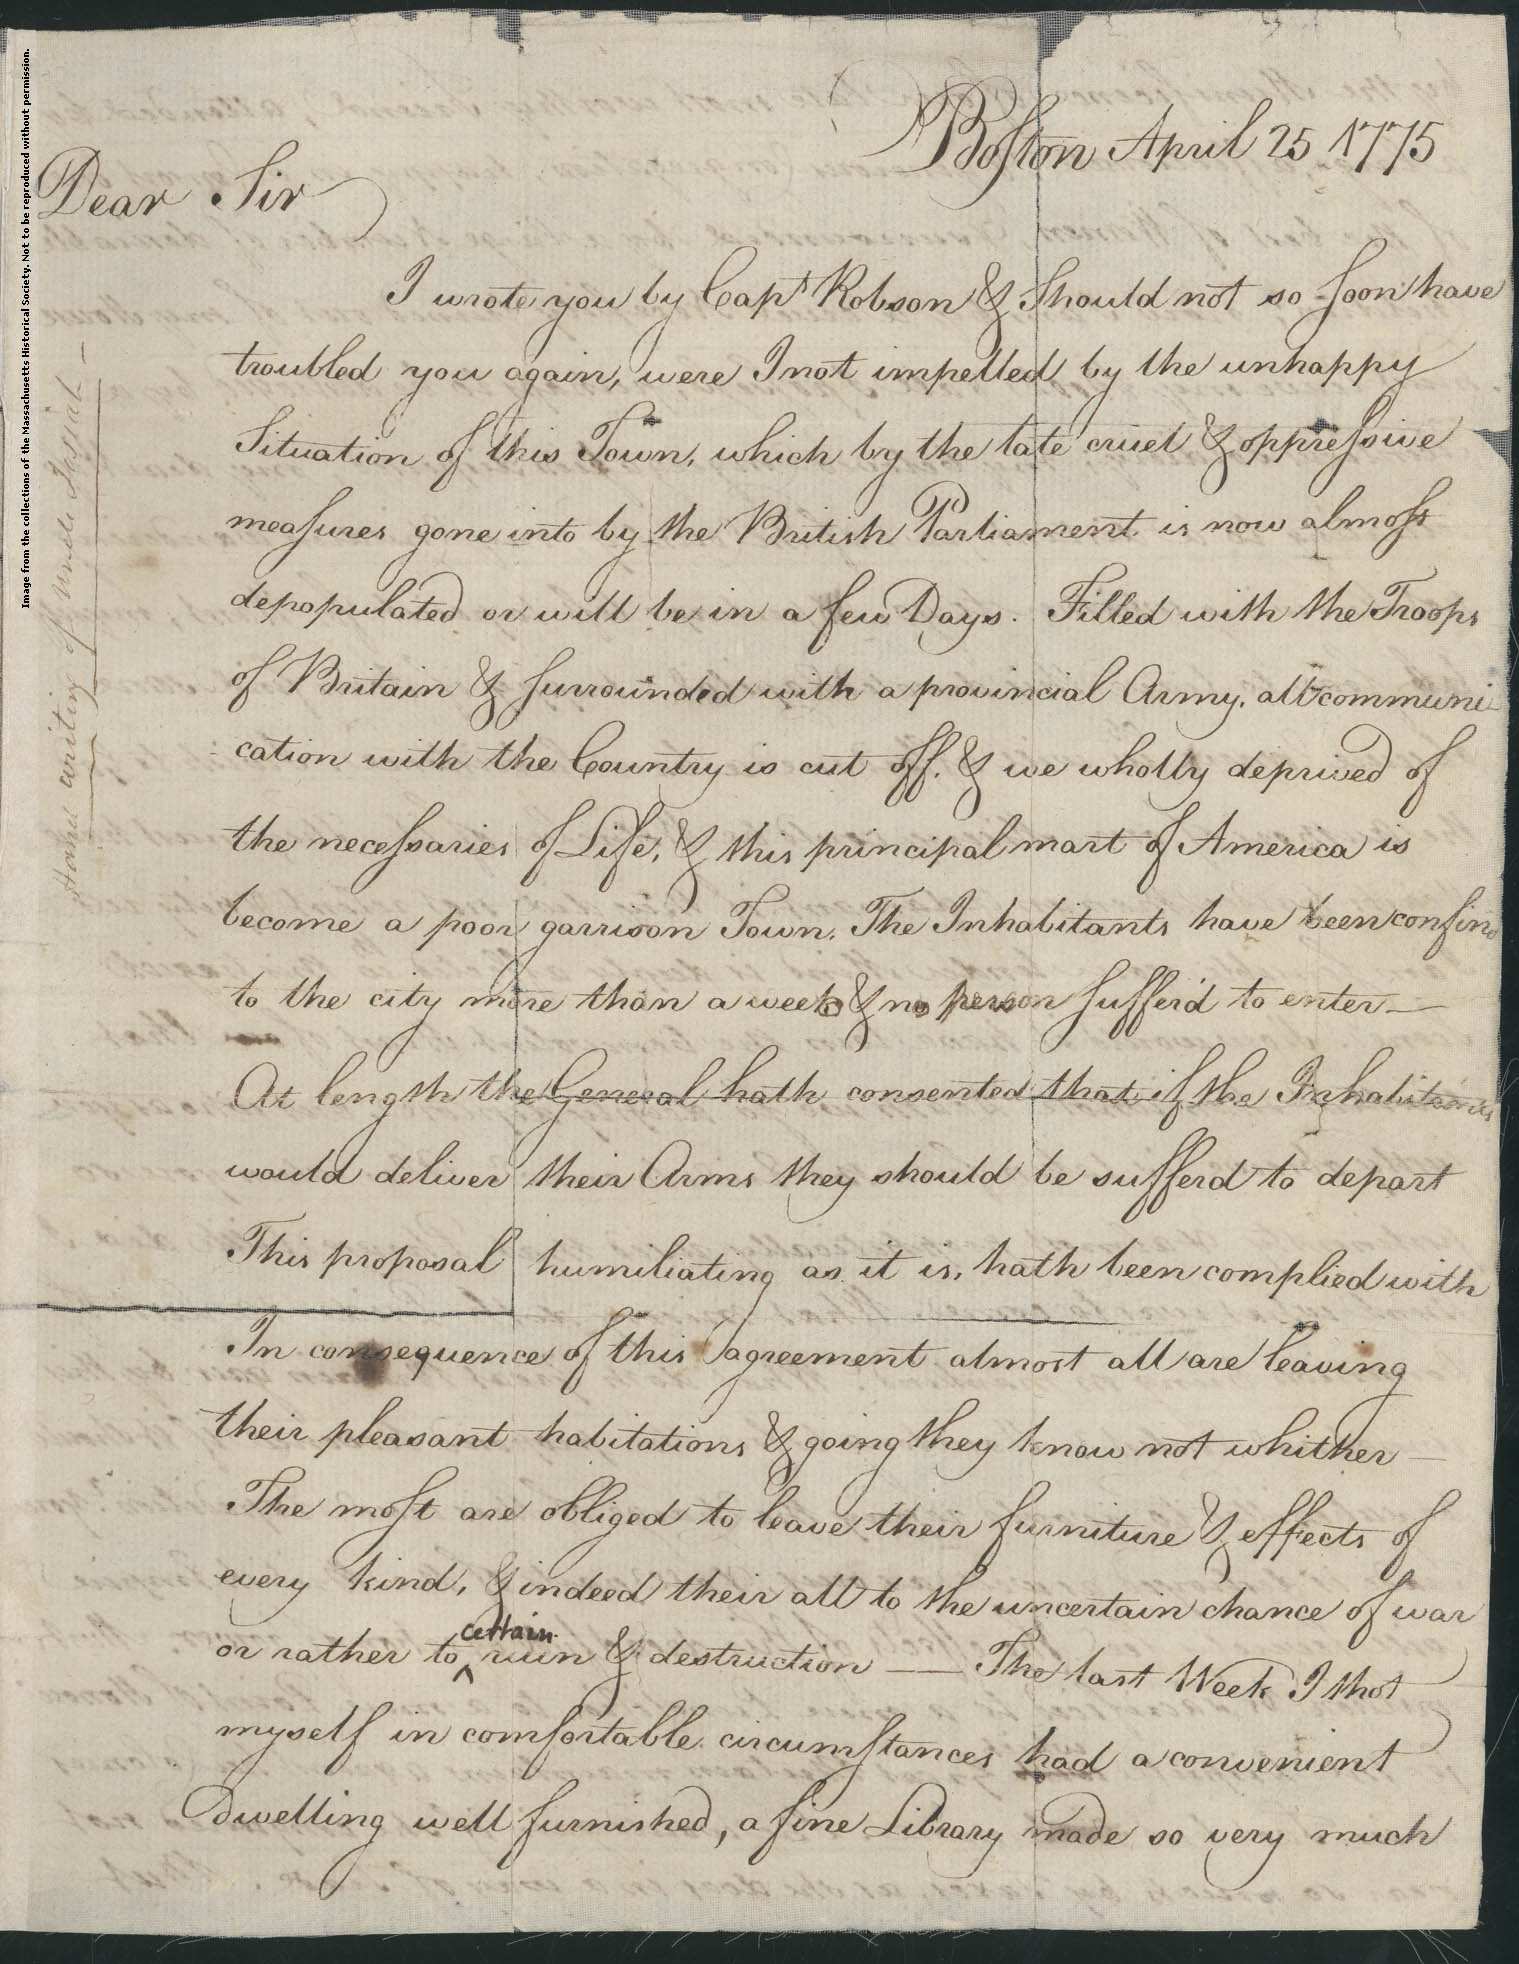 Image from the collections of the Massachusetts Historical Society. Not to be reproduced without permission.
Boston April 25 1775
Dear Sir
I wrote you by Capt Robson & Should not so soon have
troubled you again, were I not impelled by the unhappy
Situation of this Town, which by the late cruel & oppressive
measures gone into by the British Parliament is now almost
depopulated or will be in a few Days. Filled with the Troops
of Britain & surrounded with a provincial Army, all communi
cation with the Country is cut off, & we wholly deprived of
the necessaries of Life, & this principal mart of America is
become a poor garrison Town. The Inhabitants have been confind
to the city more than a week & no person sufferd to enter —
At length the General hath consented that if the Inhabitants
would deliver their Arms they should be sufferd to depart
This proposal humiliating as it is, hath been complied with
In consequence of this agreement almost all are leaving
their pleasant habitations & going they know not whither —
The most are obliged to leave their furniture & effects of
every kind, & indeed their all to the uncertain chance of war
certain
or rather to ^ ruin & destruction — The last Week I thot
myself in comfortable circumstances had a convenient
dwelling well furnished, a fine Library made so very much
Hand writing of Uncle